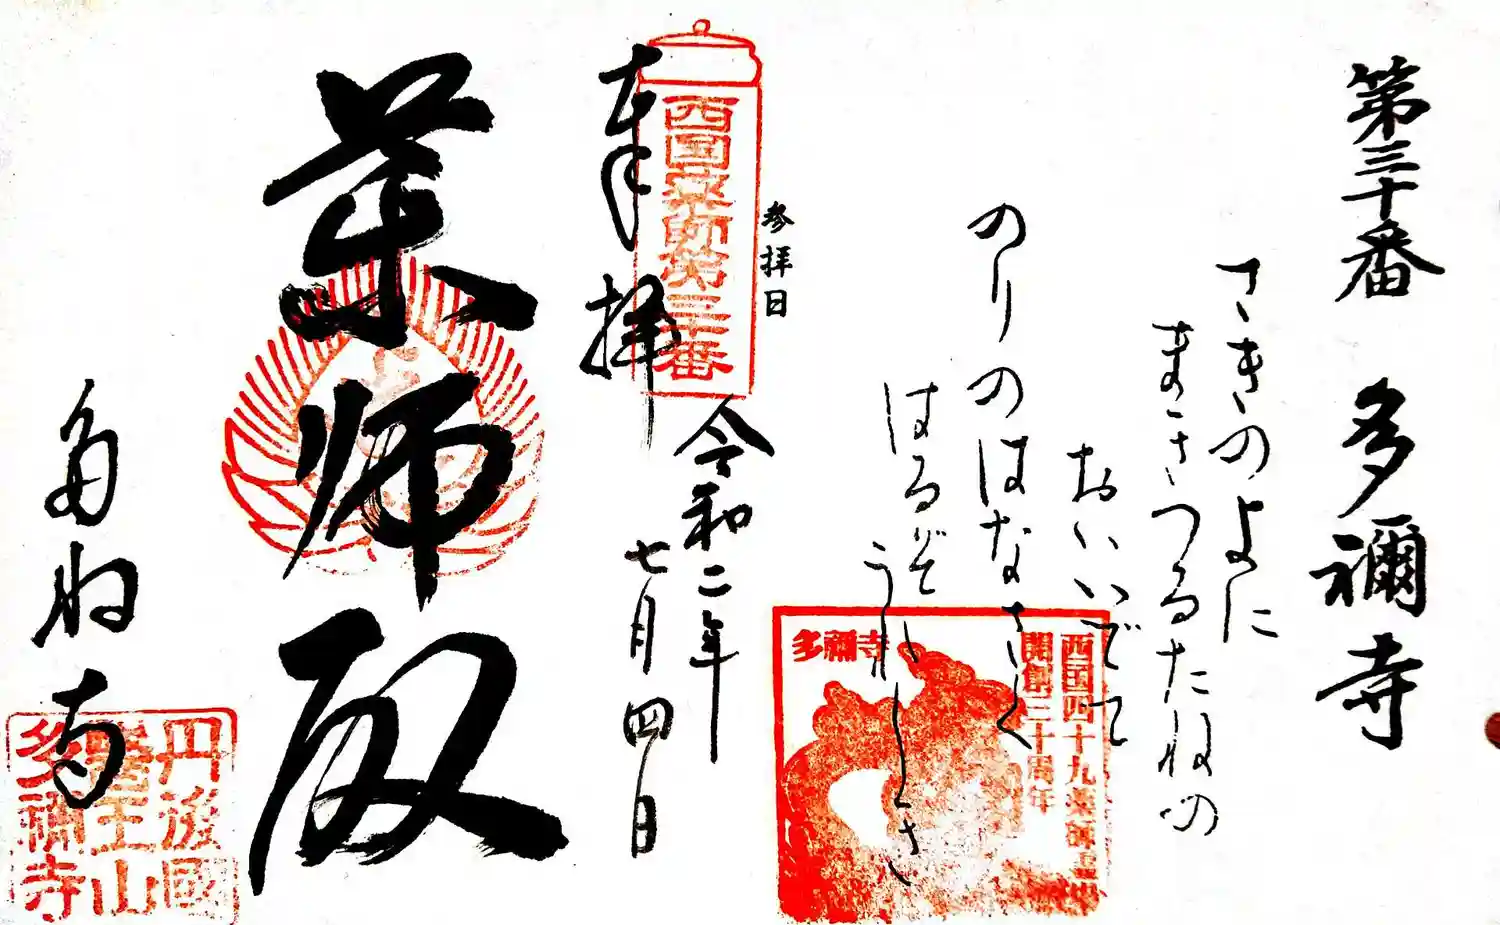 第三十番 多禰寺
さきのよに
まきつるたねの
おいいでて
のりのはなさく
はるぞ
うれしき
参拝日
西国薬師第三十番
奉拝
令和二年
七月四日
薬師殿
多祢寺
多禰寺
西国四十九薬師霊場
開創三十周年
丹後國
醫王山
多禰寺